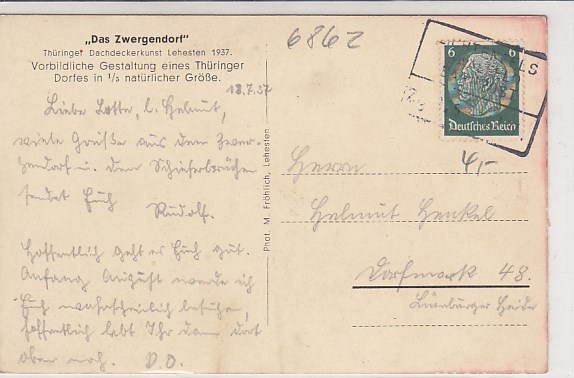 „Das Zwergendorf"
Thüringer Dachdeckerkunst Lehesten 1937.
Vorbildliche Gestaltung eines Thüringer
Dorfes in 1/3 natürlicher Größe.
18.7.37
Liebe Lotte, l. Helmut,
viele Grüße aus dem Zwer-
gendorf u. den Schieferbrüchen
sendet Euch
Rudolf.
Hoffentlich geht es Euch gut.
Anfang August werde ich
Euch wahrscheinlich besuchen,
hoffentlich lebt Ihr dann dort
oben noch. D.O.
Phot. M. Fröhlich, Lehesten
6862
6 6
Deutsches Reich
4,-
Herrn
Helmut Henkel
Dorfmark 48.
Lüneburger Heide